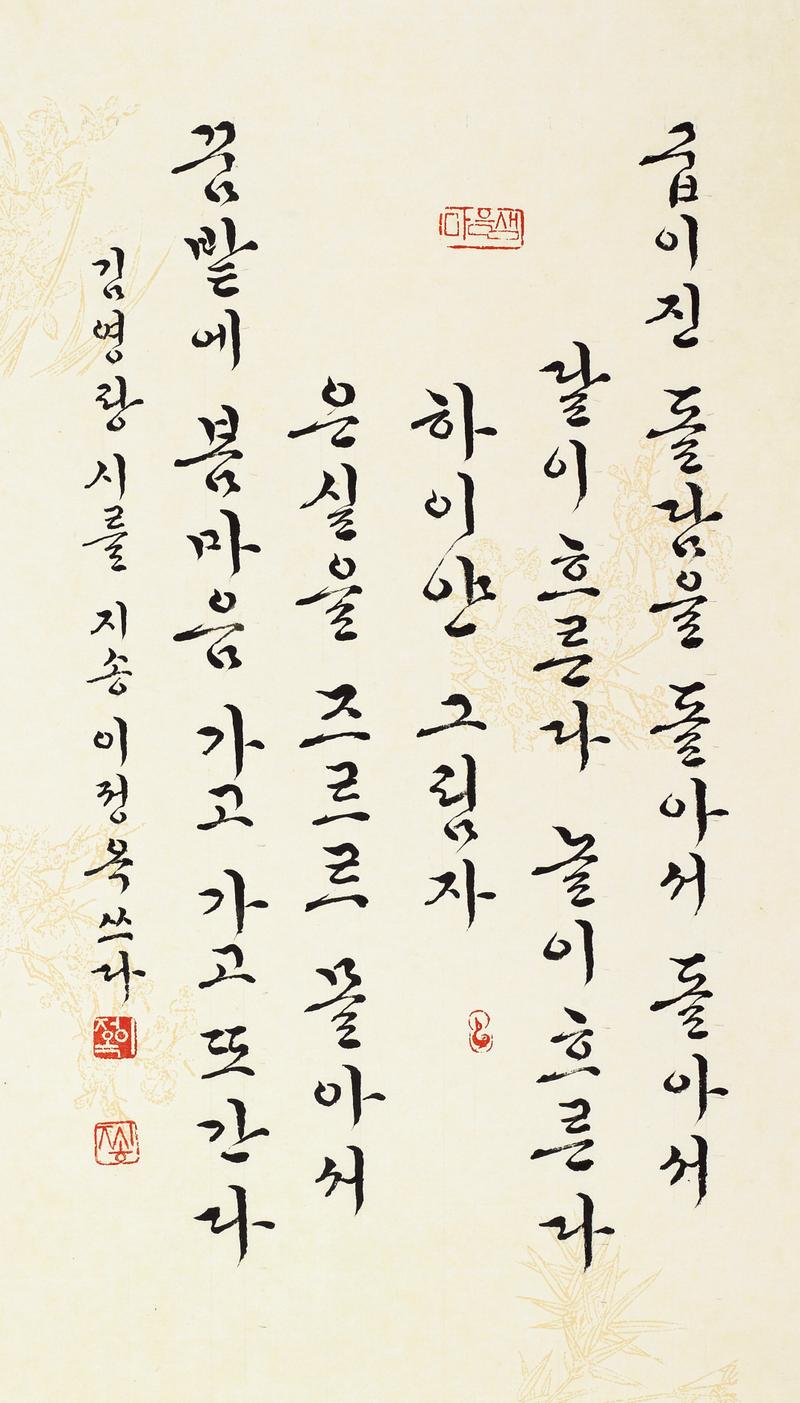 굽이진 돌담을 돌아서 돌아서
달이 흐른다 놀이 흐른다
마음샘
하이얀 그림자
은실을 즈르르 몰아서
꿈밭에 봄마음 가고 가고 또 간다
김영랑 시를 지송 이정옥 쓰다
정옥
지송